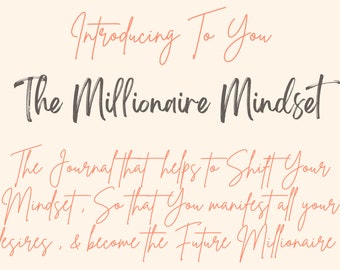 Introducing To You
The Millionaire Mindset
The Journal that helps to Shift Your
Mindset, So that You manifest all your
desires, & become the Future Millionaire